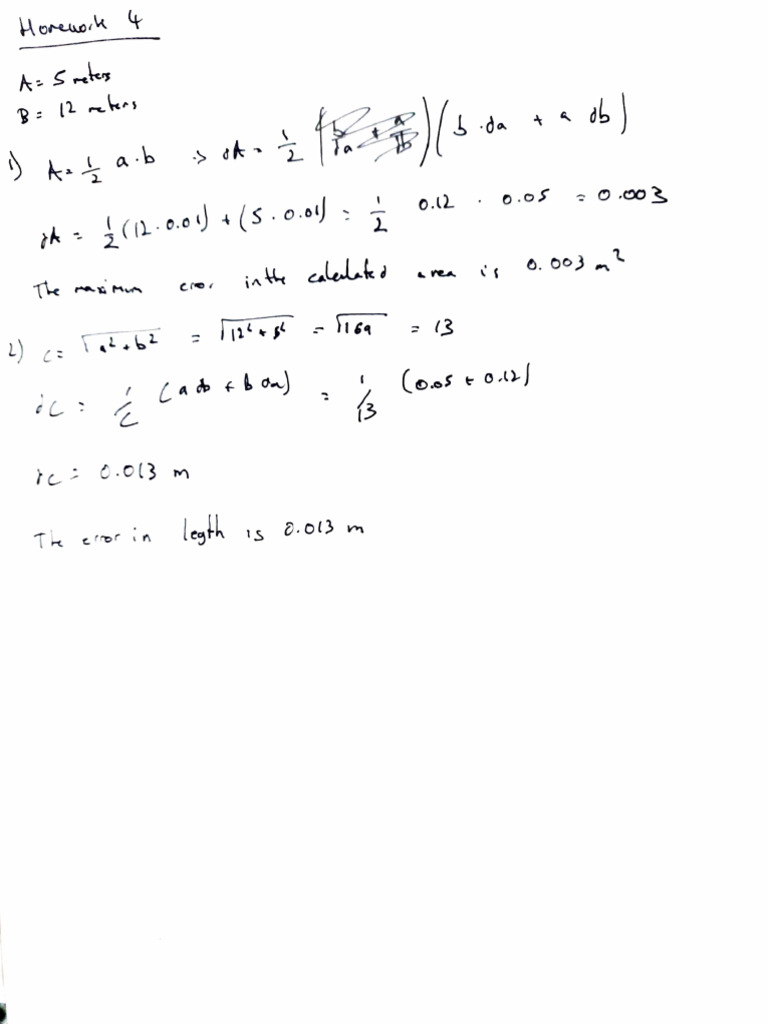 Homework 4
A = 5 meters
B = 12 meters
1) A = 1/2 a·b => dA = 1/2 (b·da + a db)
dA = 1/2 (12·0.01) + (5·0.01) = 1/2 0.12 · 0.05 = 0.003
The maximum error in the calculated area is 0.003 m²
2) c = √(a² + b²) = √(12² + 5²) = √169 = 13
dC = 1/C (a db + b da) = 1/13 (0.05 + 0.12)
dC = 0.013 m
The error in legth is 0.013 m